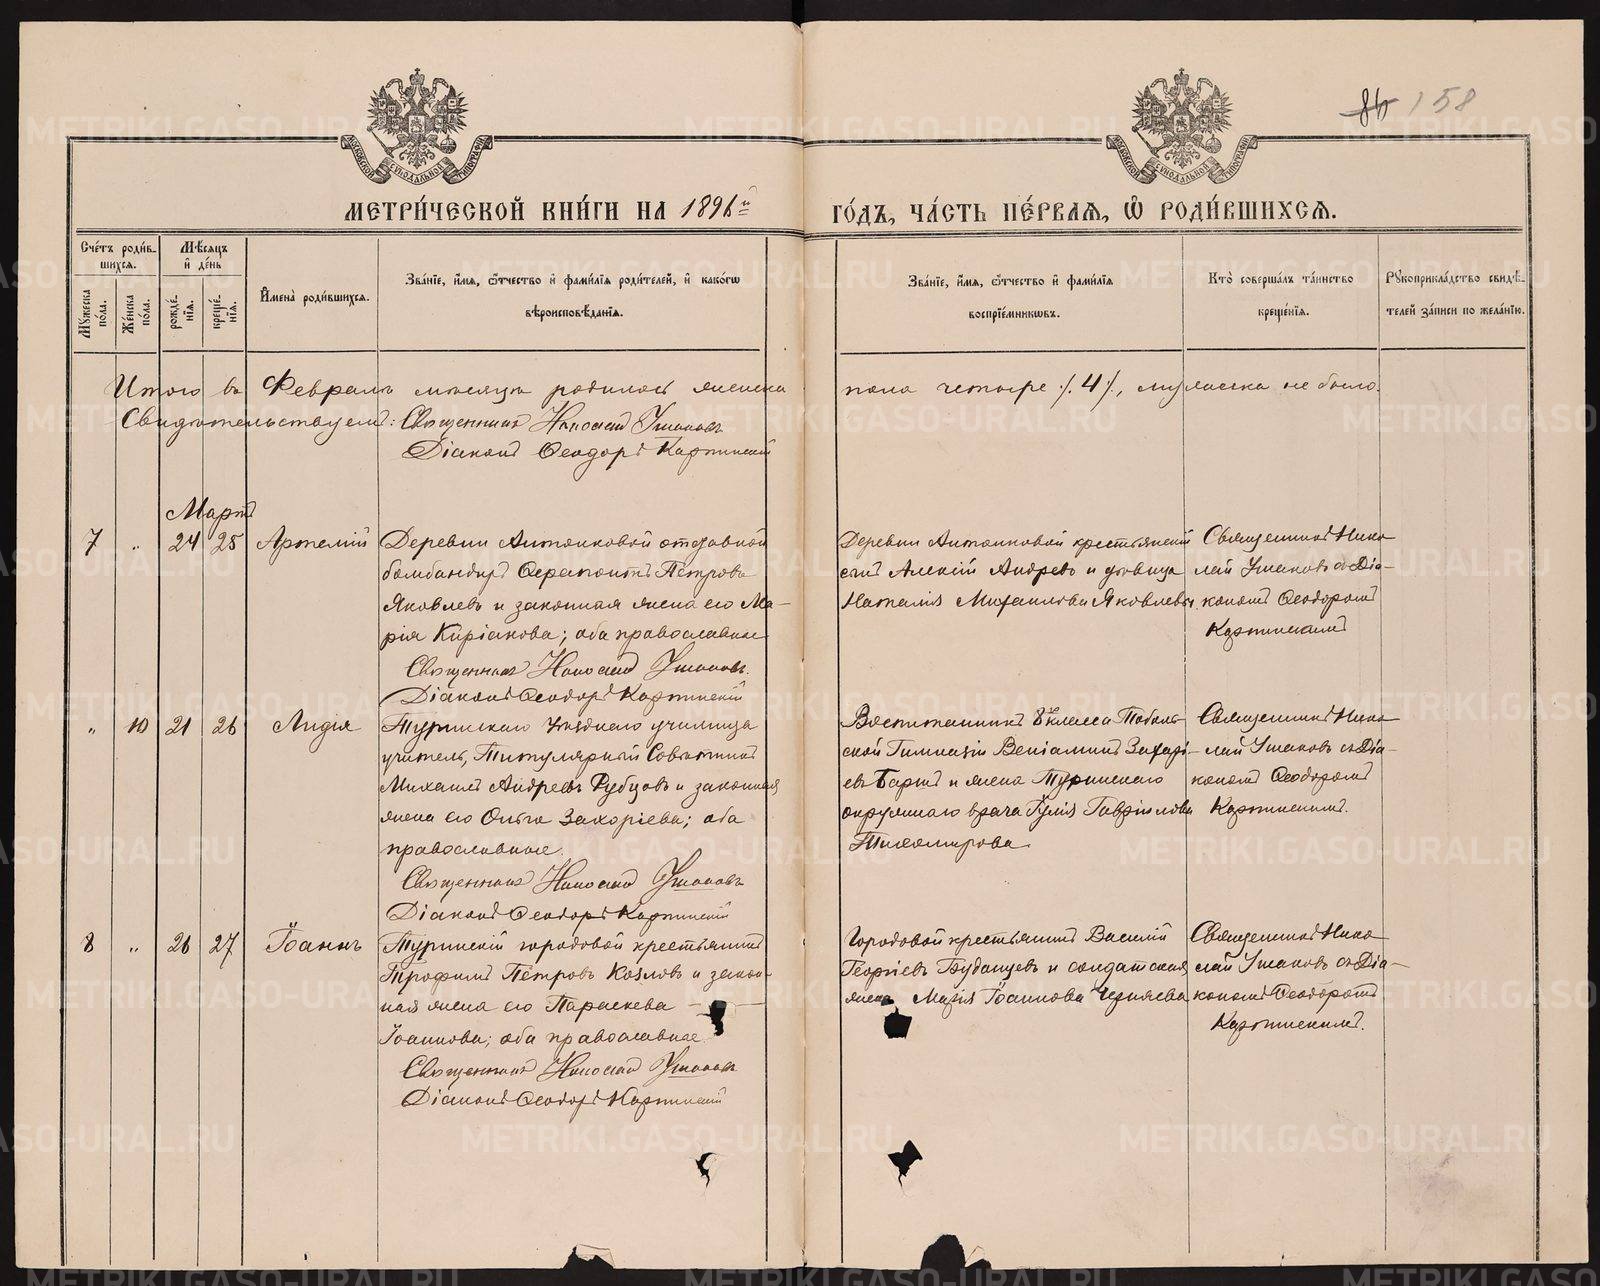 158
МЕТРИ́ЧЕСКОЙ КНИ́ГИ НА 1896й
ГО́ДЪ, ЧА́СТЬ ПЕ́РВАѦ, Ѽ РОДИ́ВШИХСѦ.
Сче́тъ роди́в-
шихсѧ.
Мѣ́сѧцъ
и҆ де́нь
Мꙋ́жеска по́ла.
Же́нска по́ла.
рожде́нїѧ.
креще́нїѧ.
И҆мена̀ роди́вшихсѧ.
Зва́нїе, и҆́мѧ, ѻ҆́тчество и҆ фами́лїѧ роди́телей, и҆ како́гѡ
вѣроисповѣ́данїѧ.
Зва́нїе, и҆́мѧ, ѻ҆́тчество и҆ фами́лїѧ
воспрїе́мникѡвъ.
Кто̀ соверша́лъ та́инство
креще́нїѧ.
Рꙋкоприкла́дство свидѣ́-
телей за́писи по жела́нїю.
Итого въ Февралѣ мѣсяцѣ родилось женска
пола четыре /.4/., мужеска не было.
Свидѣтельствуемъ: Священникъ Николай Ушаковъ
Діаконъ Ѳеодоръ Карпинскій
Мартъ
7 „ 24 25 Артемій
Деревни Антонковой отставной
бомбандиръ Ферапонтъ Петровъ
Яковлевъ и законная жена его Ма-
рія Киріакова; оба православные
Священникъ Николай Ушаковъ.
Діаконъ Ѳеодоръ Карпинскій
Деревни Антонковой крестьянскій
сынъ Алексій Андреевъ и дѣвица
Наталія Михаилова Яковлевы.
Священникъ Нико
лай Ушаковъ съ Діа-
кономъ Ѳеодоромъ
Карпинскимъ
„ 10 21 26 Лидія
Туринскаго Уѣзднаго училища
учитель, Титулярный Совѣтникъ
Михаилъ Андреевъ Рубцовъ и законная
жена его Ольга Захаріева; оба
православные.
Священникъ Николай Ушаковъ
Діаконъ Ѳеодоръ Карпинскій
Воспитанникъ 8го класса Тоболь-
ской Гимназіи Веніаминъ Захарі-
евъ и жена Туринскаго
окружнаго врача Іулія Гавріилова
Тихомирова
Священникъ Нико
лай Ушаковъ съ Діа-
кономъ Ѳеодоромъ
Карпинскимъ.
8 „ 26 27 Іоаннъ
Туринскій городовой крестьянинъ
Трофимъ Петровъ Козловъ и закон-
ная жена его Параскева
Іоаннова; оба православные.
Священникъ Николай Ушаковъ
Діаконъ Ѳеодоръ Карпинскій
Городовой крестьянинъ Василій
Георгіевъ Буданцевъ и солдатская
жена Марія Іоаннова Черняева
Священникъ Нико
лай Ушаковъ съ Діа-
кономъ Ѳеодоромъ
Карпинскимъ.
METRIKI.GASO-URAL.RU